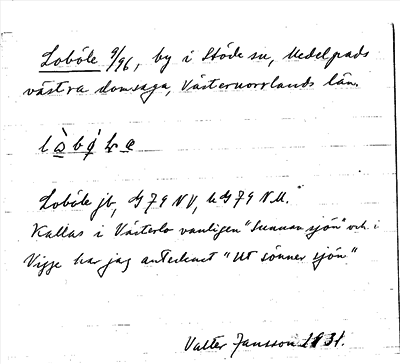 Loböle 9/96, by i Stöde sn, Medelpads
västra domsaga, Västernorrlands län.
Loböle jb, G 79 NV, uG 79 NU.
Kallas i Västerlo vanligen "Sunnan sjön" och i
Vigge har jag antecknat "Ut sönner sjön"
Valter Jansson 1931.